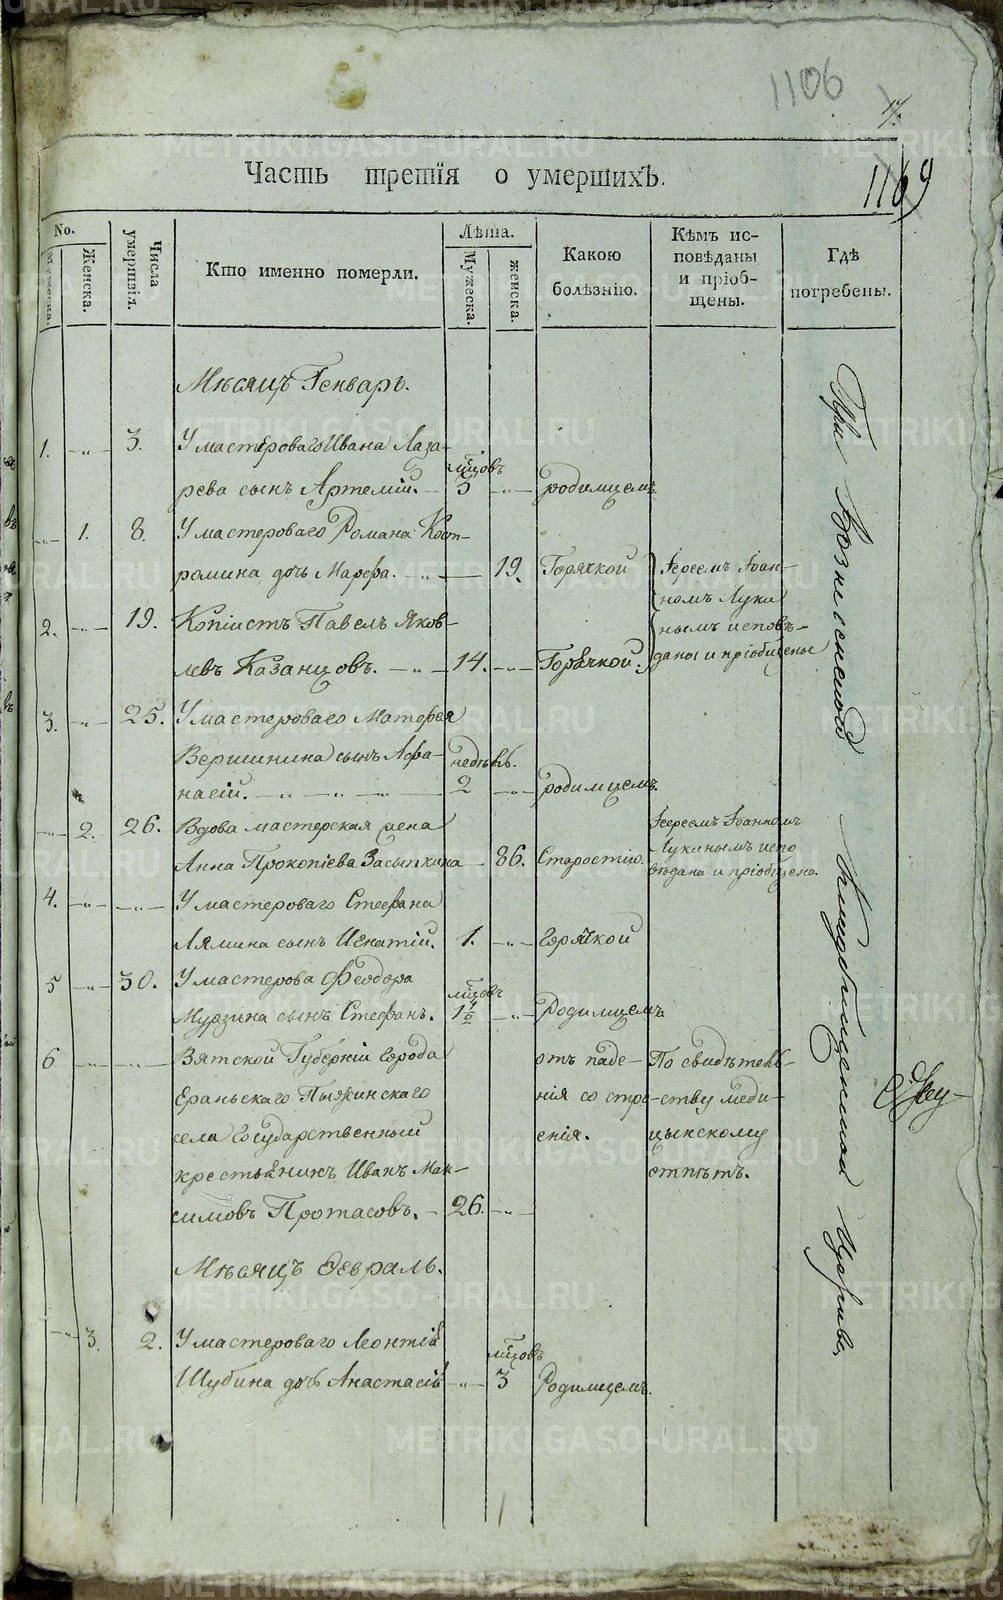 1106
17.
Часть третїя о умершихъ.
1169
No.
Мужеска.
Женска.
Числа умершїя.
Кто именно померли.
Лѣта.
Мужеска.
женска.
Какою болѣзнїю.
Кѣмъ ис-
повѣданы
и прїоб-
щены.
Гдѣ
погребены.
Мѣсяцъ Генварь.
1. -„- 3. У мастероваго Ивана Лаза-
рева сынъ Артемій. мѣсцовъ 5 -„- родимцемъ.
-„- 1. 8. У мастероваго Романа Кост-
ромина дочь Марфа. -„- 19. Горячкой
Іереемъ Іоан-
номъ Луки
нымъ исповѣ-
даны и пріобщены
2. -„- 19. Копіистъ Павелъ Яков-
левъ Казанцовъ. -„- 14. -„- Горячкой.
3. -„- 25. У мастероваго Матфея
Вершинина сынъ Афа- недѣль
насій. -„- -„- 2 -„- родимцемъ.
-„- 2. 26. Вдова мастерская жена
Анна Прокопіева Засыпкина 86. Старостію.
Іереемъ Іоанномъ
Лукинымъ испо
вѣдана и пріобщена.
4. -„- -„- У мастероваго Стефана
Лямина сынъ Игнатій. 1. -„- Горячкой
5 -„- 30. У мастерова Феодора
Мурзина сынъ Стефанъ. мѣсцовъ -„- Родимцемъ
6 -„- -„- Вятской Губерніи Города
Ераньскаго Пыжинскаго
села Государственный
крестьянинъ Иванъ Мак-
симовъ Протасовъ. - 26. -„-
отъ паде-
нія со стро-
енія.
По свидѣтель-
ству меди-
цынскому
отпѣтъ.
Мѣсяцъ Февраль.
-„- 3. 2. У мастероваго Леонтія
Шубина дочь Анастасія -„- мѣсцовъ 3 Родимцемъ.
При Вознесенской Кладбищенской Церкви,
METRIKI.GASO-URAL.RU